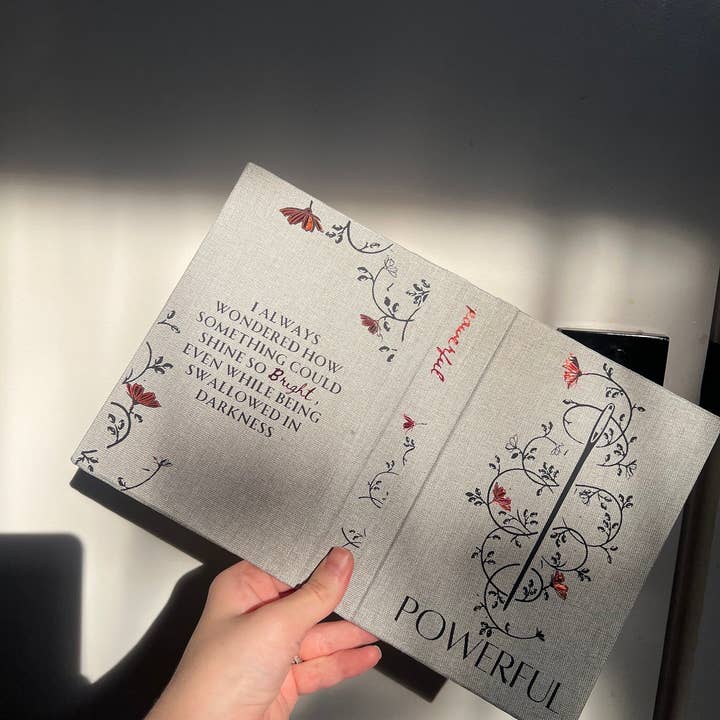 I ALWAYS
WONDERED HOW
SOMETHING COULD
SHINE SO Bright,
EVEN WHILE BEING
SWALLOWED IN
DARKNESS
Powerful
POWERFUL